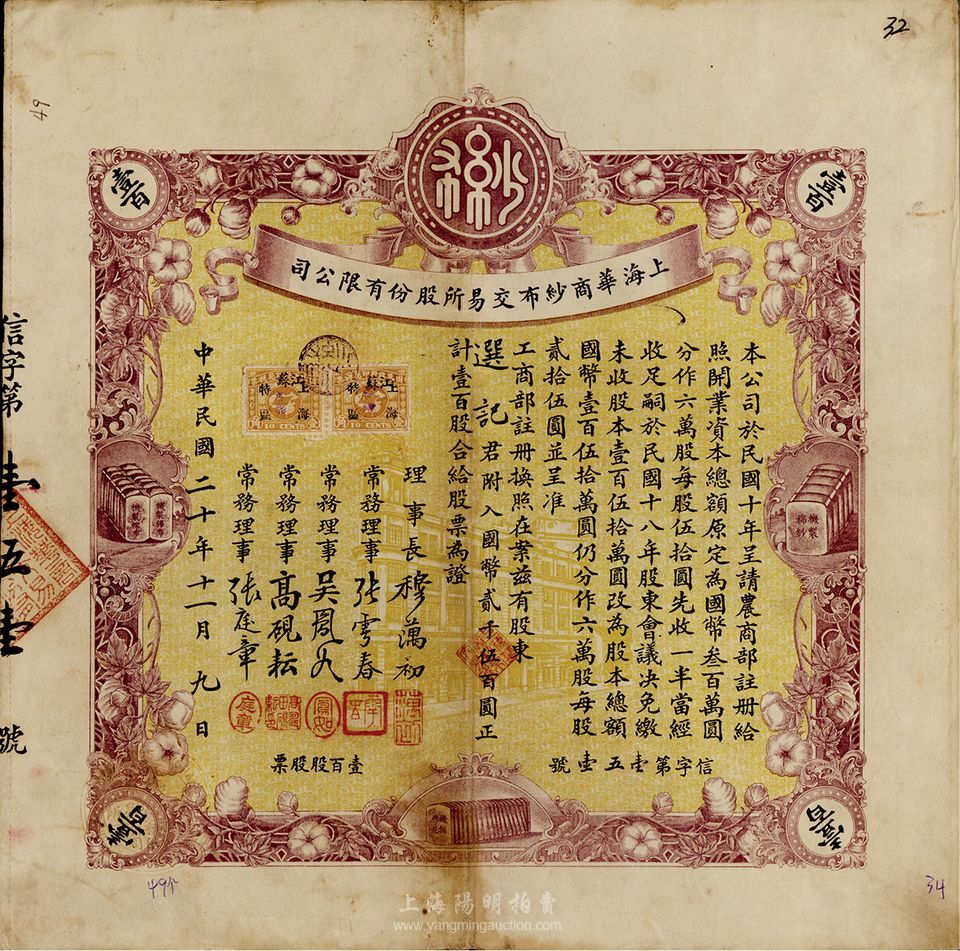 32
49
紗布
壹百
壹百
上海華商紗布交易所股份有限公司
本公司於民國十年呈請農商部註冊給
照開業資本總額原定為國幣叁百萬圓
分作六萬股每股伍拾圓先收一半當經
收足嗣於民國十八年股東會議决免繳
未收股本壹百伍拾萬圓改為股本總額
國幣壹百伍拾萬圓仍分作六萬股每股
貳拾伍圓並呈准
工商部註冊換照在案茲有股東
選記君附入國幣貳千伍百圓正
計壹百股合給股票為證
理事長 穆藕初
常務理事 張雲春
常務理事 吳鳳如
常務理事 高硯耘
常務理事 張庭章
中華民國二十年十一月九日
江蘇上海特區
10 CENTS
江蘇上海特區
10 CENTS
信字第壹五壹號
壹百股股票
信字第壹五壹號
機製棉紗
壹百
壹百
34
上海陽明拍賣
www.yangmingauction.com